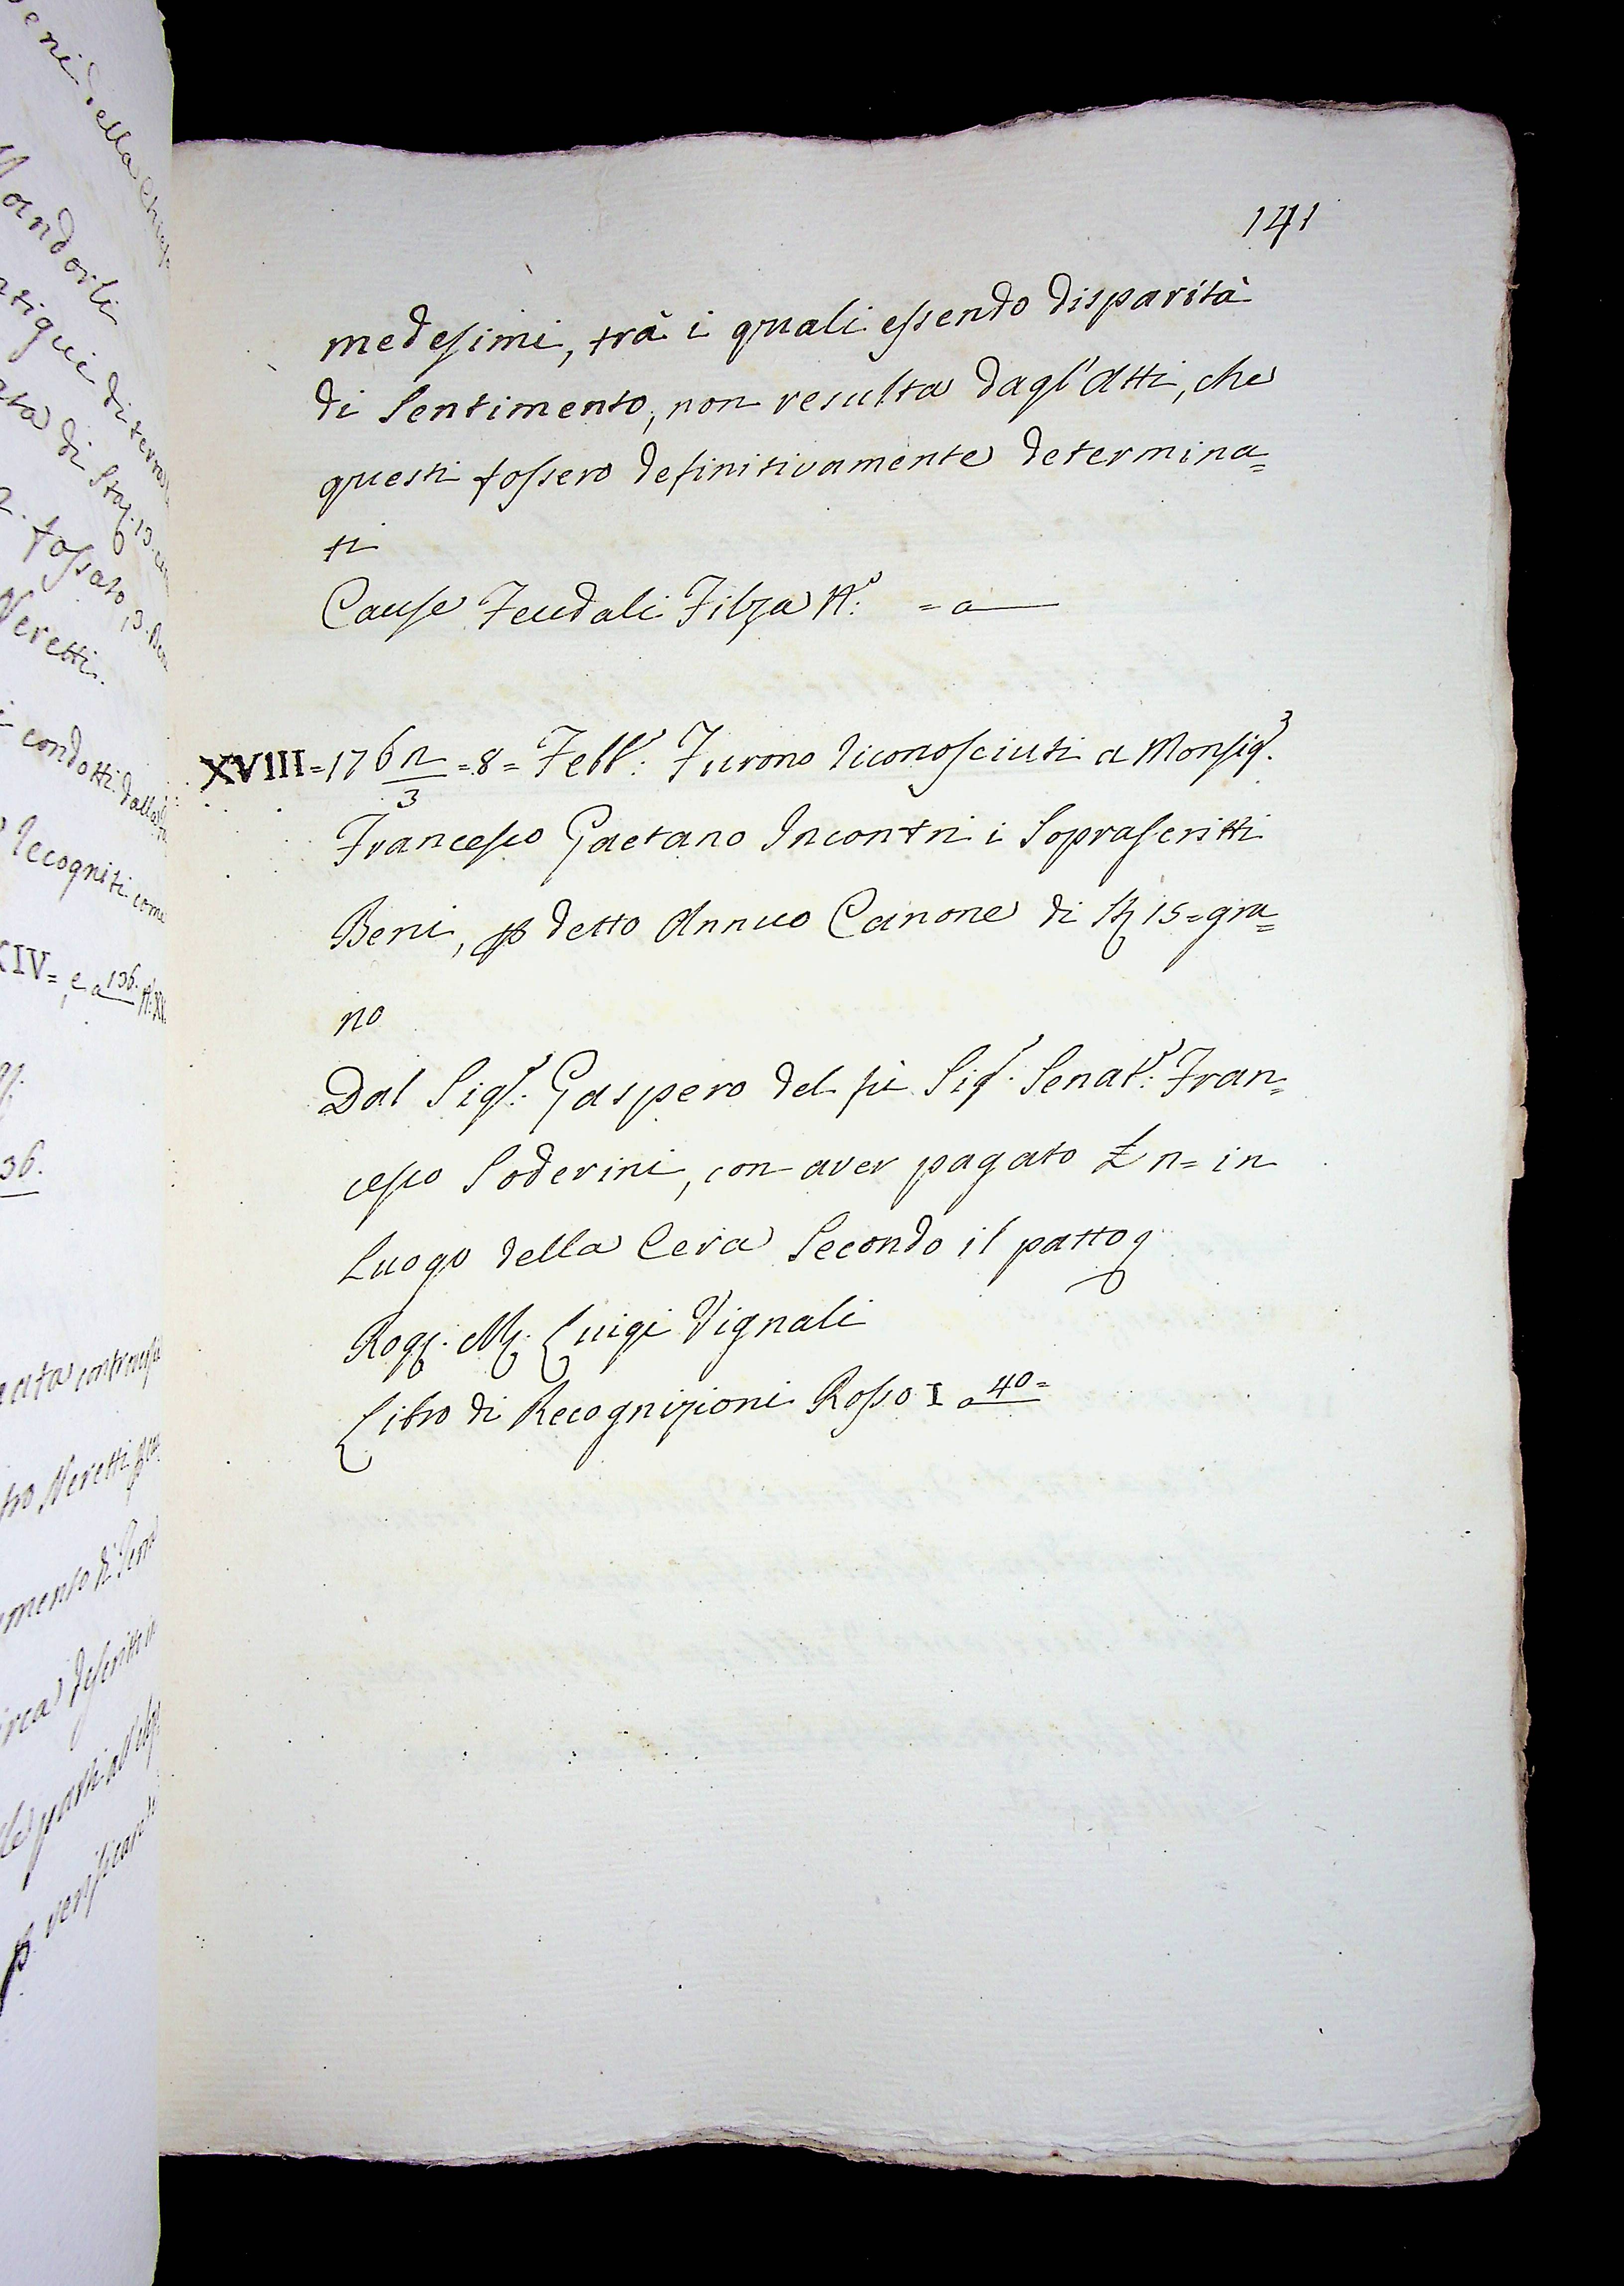 141
medesimi, trà i quali essendo disparità
di Sentimento, non resulta dagl'Atti, che
questi fossero definitivamente determina=
ti
Cause Feudali Filza N.º =a
XVIII=1762/3=8=Febb.º: Furono riconosciuti a Monsig.r
Francesco Gaetano Incontri i Soprascritti
Beni, p detto Annuo Canone di St 15=gra=
no
Dal Sig.r: Gaspero del fù Sig.r Senat.r: Fran=
cesco Soderini, con aver pagato £ n= in
Luogo della Cera Secondo il patto
Rog. M. Luigi Vignali
Libro di Recognizioni Rosso I a 40=
andorli
di terra
ta di Sta. 13.
2. fossato, 3. Ben
Neretti.
condotti dalla
Recogniti come
XIV=, e a 136.
36.
tro Neretti